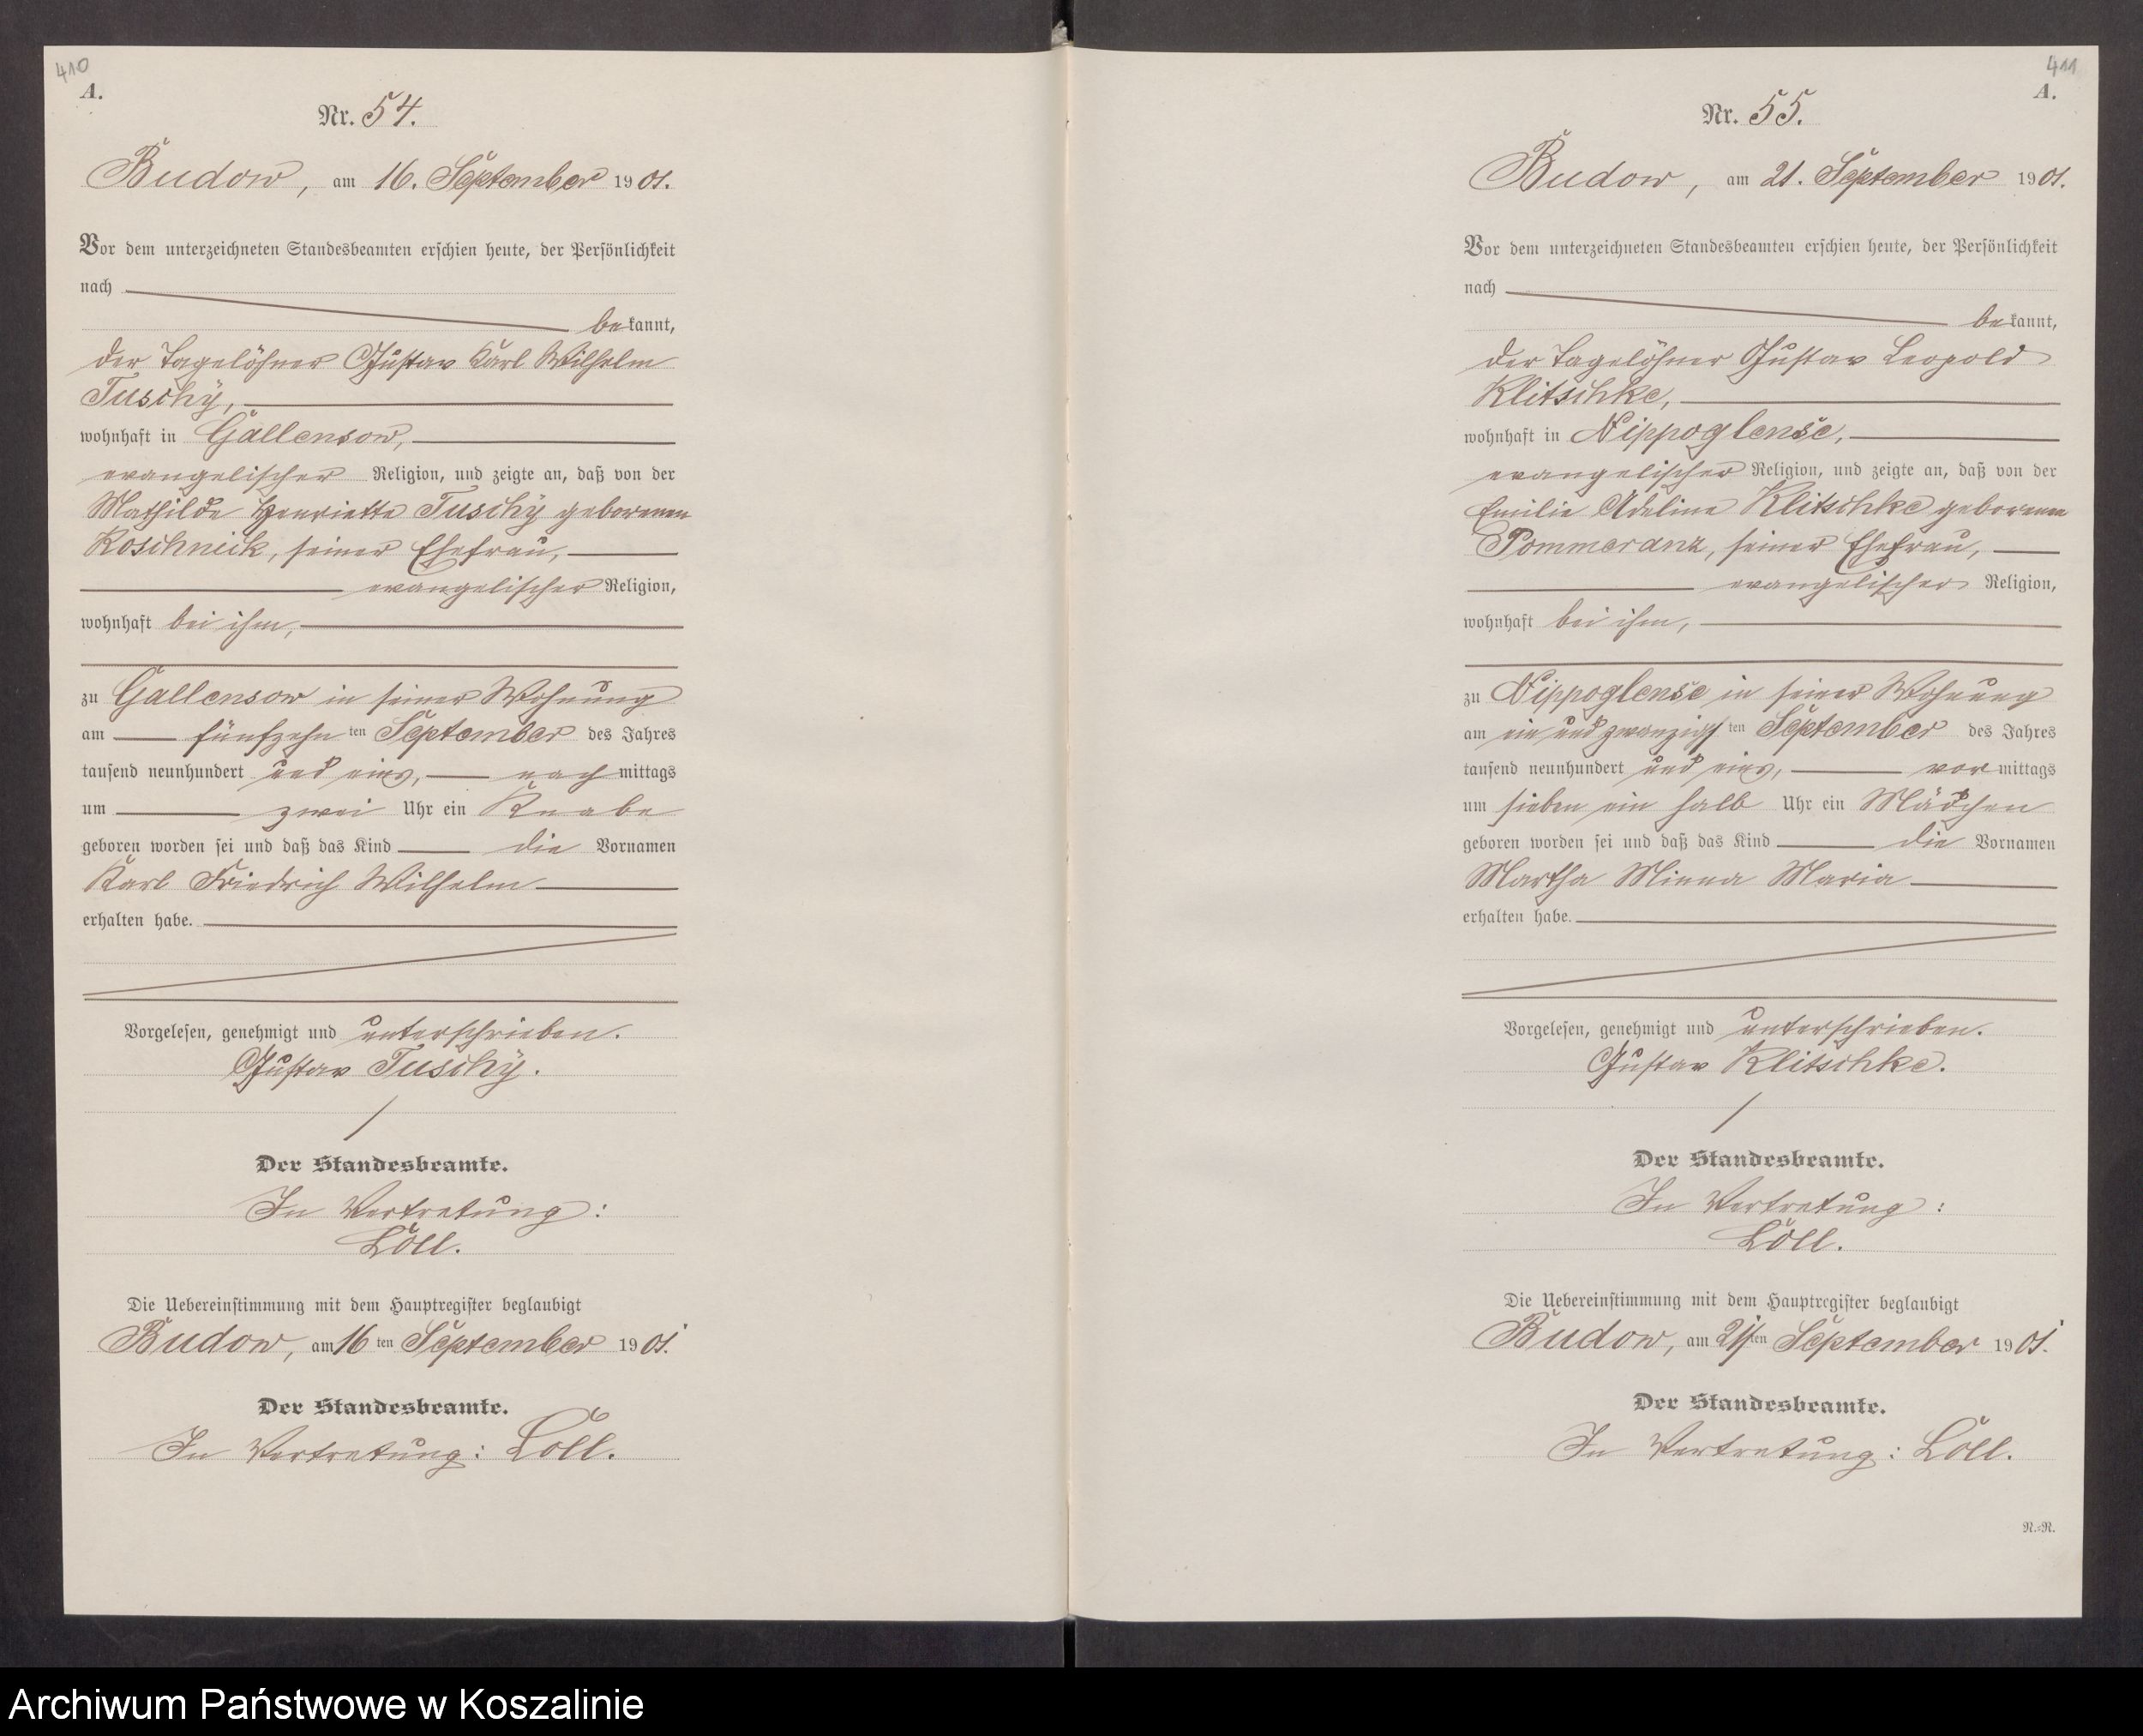 410
A.
Nr. 54.
Budow, am 16. September 1901.
Vor dem unterzeichneten Standesbeamten erschien heute, der Persönlichkeit
nach
bekannt,
der Tagelöhner Gustav Karl Wilhelm
Tuschy,
wohnhaft in Gallensow,
evangelischer Religion, und zeigte an, daß von der
Mathilde Henriette Tuschy geborenen
Koschnick, seiner Ehefrau,
evangelischer Religion,
wohnhaft bei ihm,
zu Gallensow in seiner Wohnung
am fünfzehnten September des Jahres
tausend neunhundert und eins, nachmittags
um zwei Uhr ein Knabe
geboren worden sei und daß das Kind die Vornamen
Karl Friedrich Wilhelm
erhalten habe.
Vorgelesen, genehmigt und unterschrieben.
Gustav Tuschy.
Der Standesbeamte.
In Vertretung:
Löll.
Die Uebereinstimmung mit dem Hauptregister beglaubigt
Budow, am 16ten September 1901.
Der Standesbeamte.
In Vertretung: Löll.
411
A.
Nr. 55.
Budow, am 21. September 1901.
Vor dem unterzeichneten Standesbeamten erschien heute, der Persönlichkeit
nach
bekannt,
der Tagelöhner Gustav Leopold
Klitschke,
wohnhaft in Nippoglense,
evangelischer Religion, und zeigte an, daß von der
Emilie Adeline Klitschke geborenen
Pommeranz, seiner Ehefrau,
evangelischer Religion,
wohnhaft bei ihm,
zu Nippoglense in seiner Wohnung
am ein und zwanzigsten September des Jahres
tausend neunhundert und eins, vormittags
um sieben ein halb Uhr ein Mädchen
geboren worden sei und daß das Kind die Vornamen
Martha Minna Maria
erhalten habe.
Vorgelesen, genehmigt und unterschrieben.
Gustav Klitschke.
Der Standesbeamte.
In Vertretung:
Löll.
Die Uebereinstimmung mit dem Hauptregister beglaubigt
Budow, am 21ten September 1901.
Der Standesbeamte.
In Vertretung: Löll.
N.=N.
Archiwum Państwowe w Koszalinie